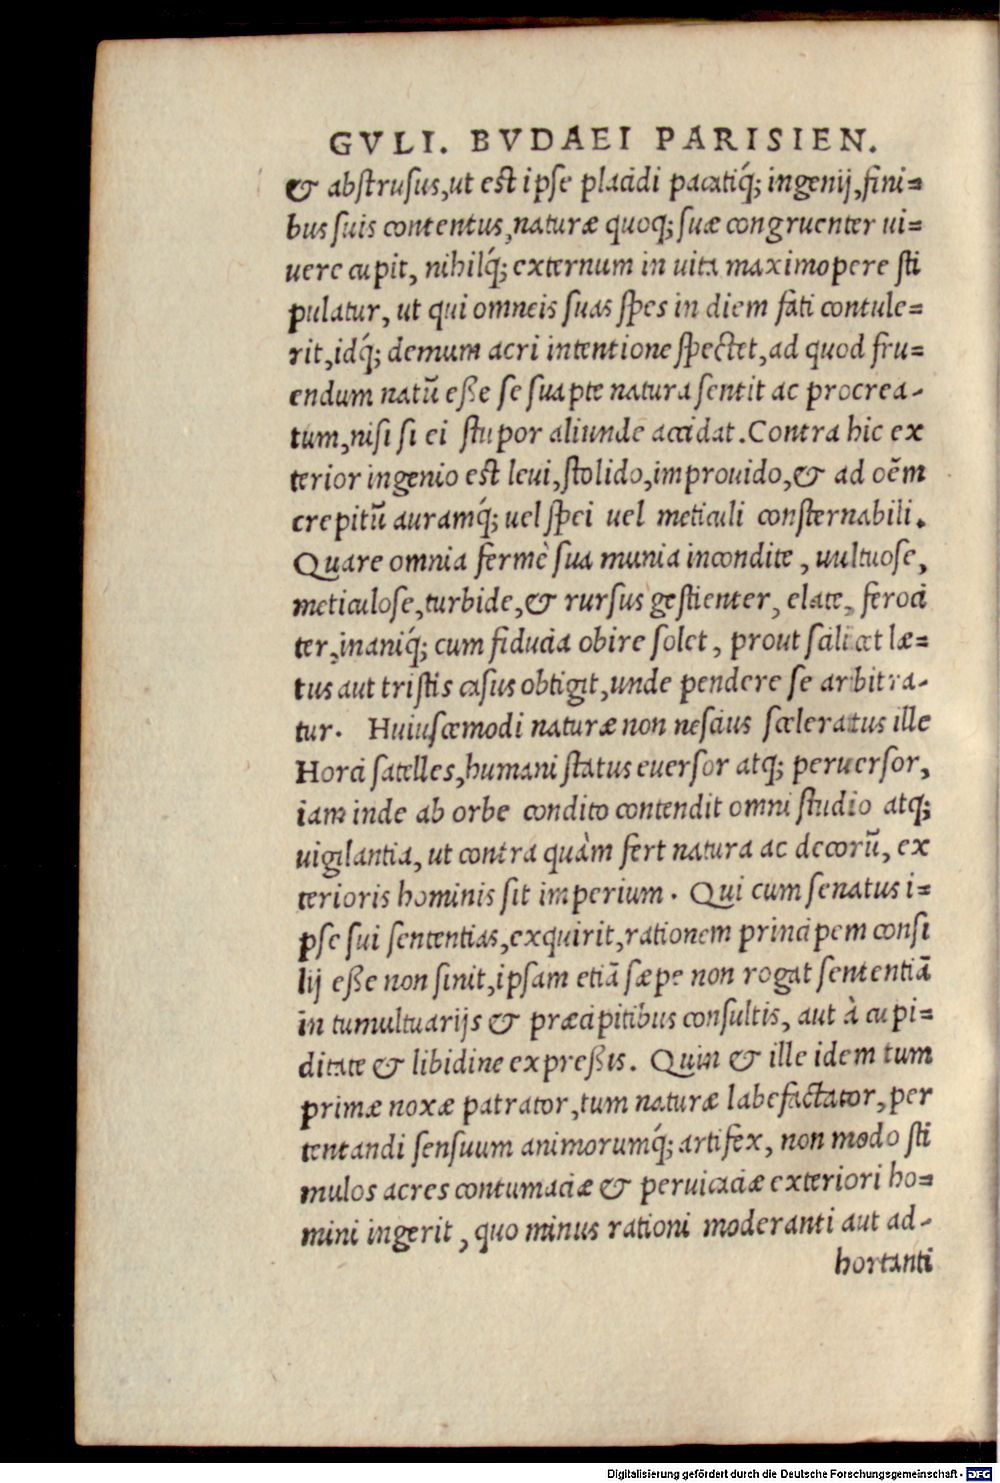 GVLI. BVDAEI PARISIEN.
& abstrusus,ut est ipse placidi pacatiq́; ingenij,fini=
bus suis contentus,naturæ quoq; suæ congruenter ui=
uere cupit, nihilq́; externum in uita maximopere sti
pulatur, ut qui omneis suas spes in diem fati contule=
rit,idq́; demum acri intentione spectet,ad quod fru=
endum natū eße se suapte natura sentit ac procrea-
tum,nisi si ei stupor aliunde accidat.Contra hic ex
terior ingenio est leui,stolido,improuido,& ad oēm
crepitū auramq́; uel spei uel meticuli consternabili.
Quare omnia fermè sua munia incondite, uultuose,
meticulose,turbide,& rursus gestienter, elate, feroci
ter,inaniq́; cum fiducia obire solet, prout scilicet læ=
tus aut tristis casus obtigit,unde pendere se arbitra-
tur. Huiuscemodi naturæ non nescius sceleratus ille
Horci satelles,humani status euersor atq; peruersor,
iam inde ab orbe condito contendit omni studio atq;
uigilantia, ut contra quàm fert natura ac decorū, ex
terioris hominis sit imperium. Qui cum senatus i=
pse sui sententias,exquirit,rationem principem consi
lij eße non sinit,ipsam etiā sæpe non rogat sententiā
in tumultuarijs & præcipitibus consultis, aut à cupi=
ditate & libidine expreßis. Quin & ille idem tum
primæ noxæ patrator,tum naturæ labefactator,per
tentandi sensuum animorumq́; artifex, non modo sti
mulos acres contumaciæ & peruicaciæ exteriori ho=
mini ingerit, quo minus rationi moderanti aut ad-
hortanti
Digitalisierung gefördert durch die Deutsche Forschungsgemeinschaft - DFG